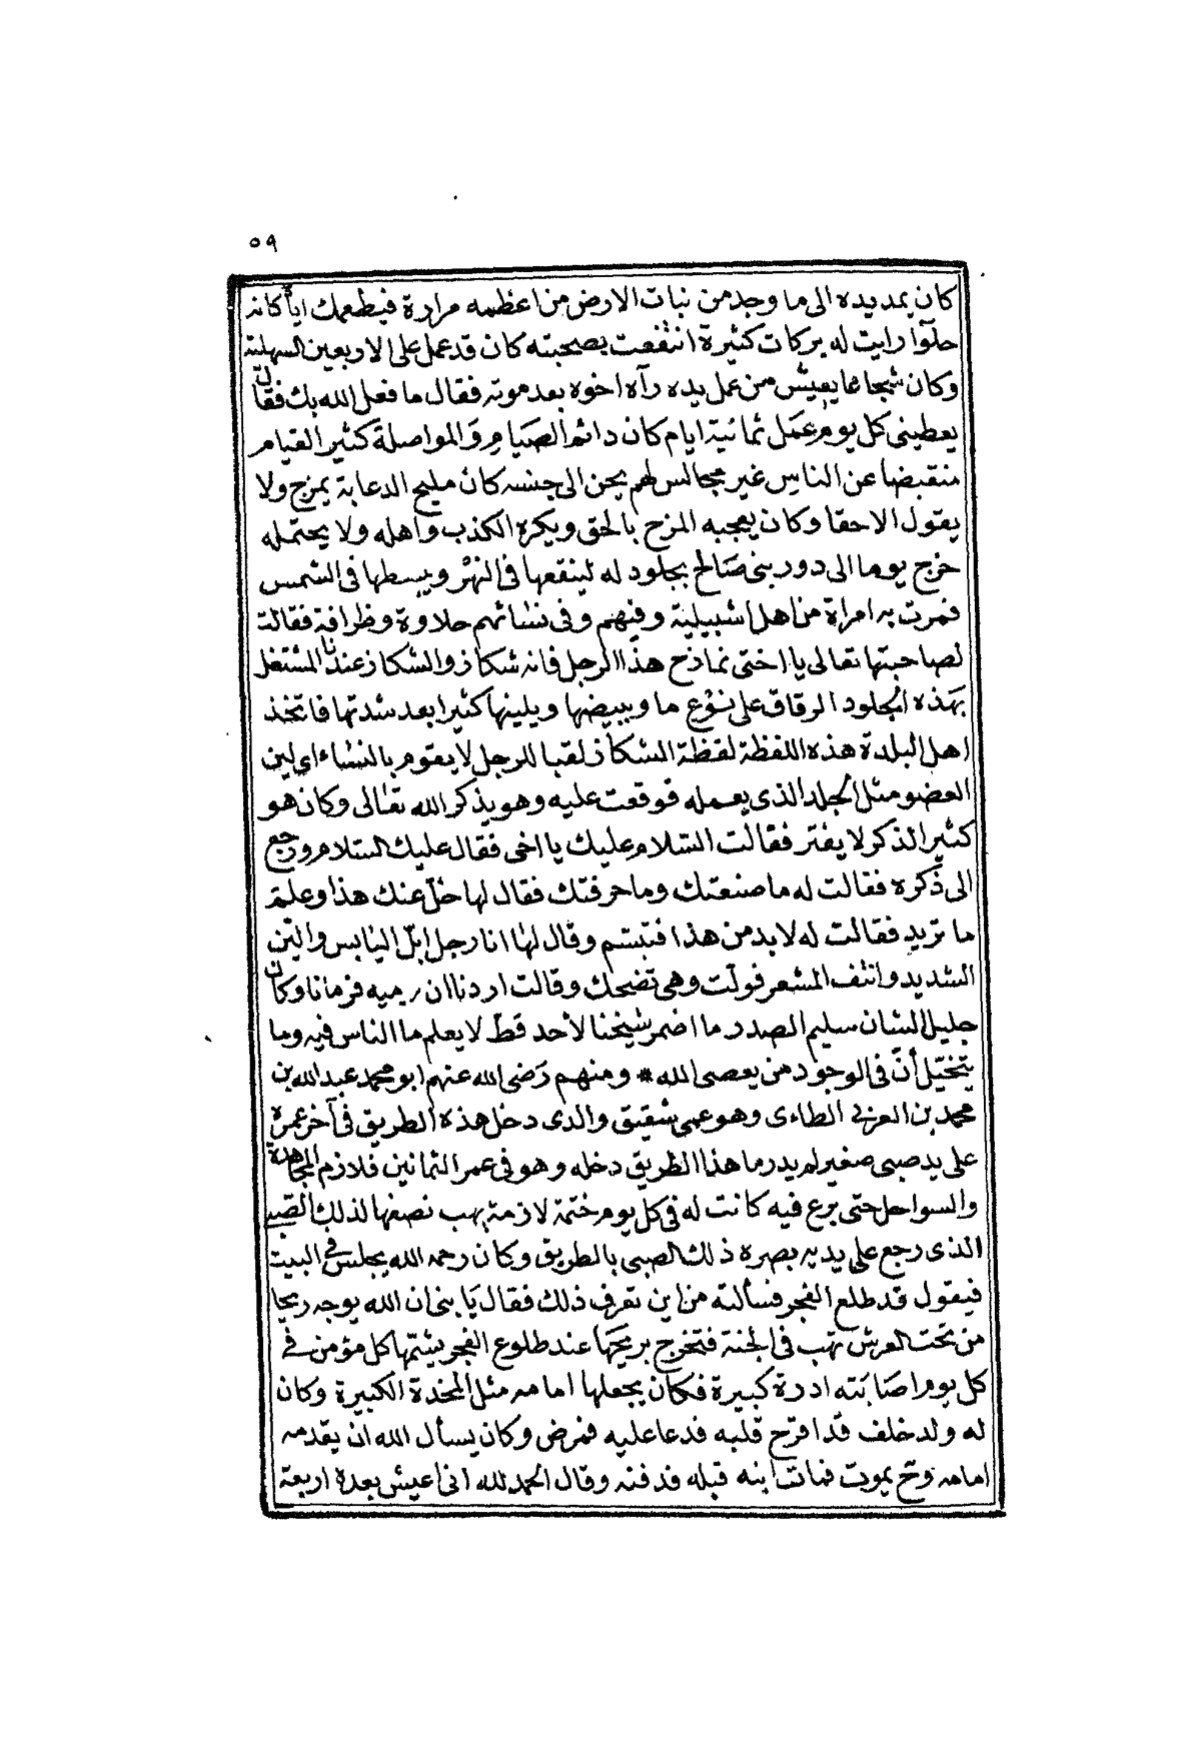 ٥٩
كان يمد يده الى ما وجد من نبات الارض من اعظمه مرارة فيطعمك اياه كانه
حلوا رايت له بركات كثيرة انتفعت بصحبته كان قد عمل على الاربعين السهلية
وكان شجاعا يعيش من عمل يده رآه اخوه بعد موته فقال ما فعل الله بك فقال
يعطينى كل يوم عمل ثمانية ايام كان دائم الصيام والمواصلة كثير القيام
منقبضا عن الناس غير مجالس لهم يحن الى جنسه كان مليح الدعابة يمزح ولا
يقول الا حقا وكان يعجبه المزح بالحق ويكره الكذب واهله ولا يحتمله
خرج يوما الى دور بنى صالح بجلود له لينقعها فى النهر ويبسطها فى الشمس
فمرت به امراة من اهل اشبيلية وفيهم وفى نسائهم حلاوة وظرافة فقالت
لصاحبتها تعالى يا اختى نمازح هذا الرجل فانه شكاز والشكاز عندنا المشتغل
بهذه الجلود الرقاق على نوع ما ويبيضها ويلينها كثيرا بعد شدتها فاتخذ
اهل البلدة هذه اللفظة لفظة الشكاز لقبا للرجل لا يقوم بالنساء اى لين
العضو مثل الجلد الذى يعمله فوقعت عليه وهو يذكر الله تعالى وكان هو
كثير الذكر لا يفتر فقالت السلام عليك يا اخى فقال عليك السلام ورجع
الى ذكره فقالت له ما صنعتك وما حرفتك فقال لها خل عنك هذا وعلم
ما تريد فقالت له لا بد من هذا فتبسم وقال لها انا رجل ابل اليابس والين
الشديد وانتف المشعر فولت وهى تضحك وقالت اردنا ان نرميه فرمانا وكان
جليل الشان سليم الصدر ما اضمر شيخنا لأحد قط لا يعلم ما الناس فيه وما
يتخيل أن فى الوجود من يعصى الله * ومنهم رضى الله عنهم ابو محمد عبد الله بن
محمد بن العربى الطاءى وهو عمى شقيق والدى دخل هذه الطريق فى آخر عمره
على يد صبى صغير لم يدر ما هذا الطريق دخله وهو فى عمر الثمانين فلازم المجاهدة
والسواحل حتى برع فيه كانت له فى كل يوم ختمة لازمة يهب نصفها لذلك الصبى
الذى رجع على يديه بصره ذلك الصبى بالطريق وكان رحمه الله يجلس فى البيت
فيقول قد طلع الفجر فسألته من اين تعرف ذلك فقال يا بنى ان الله يوجه ريحا
من تحت العرش تهب فى الجنة فتخرج بريحها عند طلوع الفجر يشتمها كل مؤمن فى
كل يوم اصابته ادرة كبيرة فكان يجعلها امامه مثل المخدة الكبيرة وكان
له ولد خلف قد اقرح قلبه فدعا عليه فمرض وكان يسأل الله ان يقدمه
امامه وح يموت فمات ابنه قبله فدفنه وقال الحمد لله انى اعيش بعده اربعة